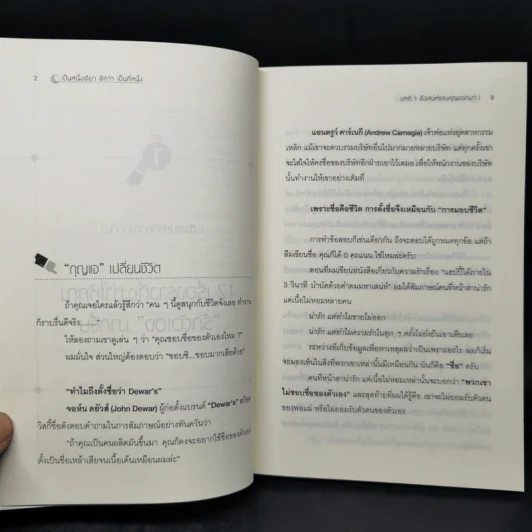 2
เป็นหนึ่งเดียว ดีกว่า เป็นที่หนึ่ง
"กุญแจ" เปลี่ยนชีวิต
ถ้าคุณเจอใครแล้วรู้สึกว่า "คน ๆ นี้ดูสนุกกับชีวิตจังเลย ทำงาน
ก็ราบรื่นดีจริง...."
ให้ลองถามเขาดูเล่น ๆ ว่า "คุณชอบชื่อของตัวเองไหม ?"
ผมมั่นใจ ส่วนใหญ่ต้องตอบว่า "ชอบซิ...ชอบมากเสียด้วย"
"ทำไมถึงตั้งชื่อว่า Dewar's"
จอห์น ดยัวส์ (John Dewar) ผู้ก่อตั้งแบรนด์ "Dewar's"
วิสกี้ชื่อดังตอบคำถามในการสัมภาษณ์อย่างทันควันว่า
"ถ้าคุณเป็นคนผลิตมันขึ้นมา คุณก็คงจะอยากใช้ชื่อของตัวเอง
ตั้งเป็นชื่อเหล้าเสียจนเนื้อเต้นเหมือนผมล่ะ"
บทที่ 1 3
แอนดรูว์ คาร์เนกี (Andrew Carnegie) เจ้าพ่อแห่งอุตสาหกรรม
เหล็ก แม้เขาจะควบรวมบริษัทอื่นไปมากมายหลายบริษัท แต่ทุกครั้งเขา
จะใส่ใจให้คงชื่อของบริษัทอีกฝ่ายเอาไว้เสมอ เพื่อให้พนักงานของบริษัท
นั้นทำงานให้เขาอย่างเต็มที่
เพราะชื่อคือชีวิต การตั้งชื่อจึงเหมือนกับ "การมอบชีวิต"
การทำข้อสอบก็เช่นเดียวกัน ถึงจะตอบได้ถูกหมดทุกข้อ แต่ถ้า
ลืมเขียนชื่อ คุณก็ได้ 0 คะแนน ใช่ไหมล่ะครับ
ตอนที่ผมเขียนหนังสือเกี่ยวกับความรักเรื่อง "แฮปปี้ได้ภายใน
3 วินาที บำบัดด้วยคำคมมหาเสน่ห์" ผมได้สัมภาษณ์คนที่หน้าตาน่ารัก
แต่เนื้อไม่หอมหลายคน
น่ารัก แต่ทำไมขายไม่ออก
น่ารัก แต่ทำไมความรักในทุก ๆ ครั้งไม่ยั่งยืนเอาเสียเลย
ระหว่างที่เก็บข้อมูลเพื่อหาเหตุผลว่าเป็นเพราะอะไร ผมก็เริ่ม
จะมองเห็นในสิ่งที่พวกเขาเหล่านั้นมีเหมือนกัน นั่นก็คือ "ชื่อ" ครับ
คนที่หน้าตาน่ารัก แต่เนื้อไม่หอมเหล่านั้นจะบอกว่า "พวกเขา
ไม่ชอบชื่อของตัวเอง" และสุดท้ายที่ผมได้รู้คือ เขาจะไม่ยอมรับตัวตน
ของพ่อแม่ หรือไม่ยอมรับตัวตนของตัวเอง